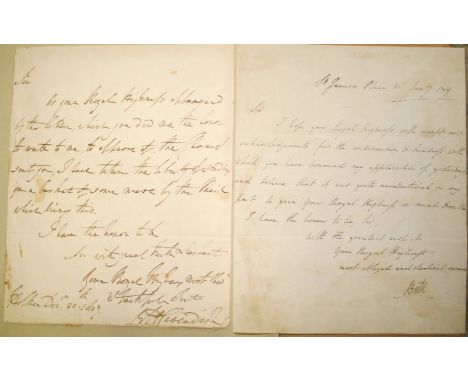 Sir
As your Royal Highness appeared
by the letter, which you did me the honor
to write to me to approve of the
sent you, I have taken the liberty of sending
you a basket of some more by the
which brings this.
I have the honor to be
Sir with great truth & respect
Your Royal Highness's most
& faithful Servt
Decr 20th 1809
St James's Place 31st Jany 1809
Sir
I hope your Royal Highness will accept my
acknowledgments for the condescension & kindness with
which you have honoured my application of yesterday
and believe that it was quite unintentional on my
part to give Your Royal Highness so much trouble
I have the honour to be, Sir,
with the greatest respect
Your Royal Highness's
most obliged and obedient servant
Bute